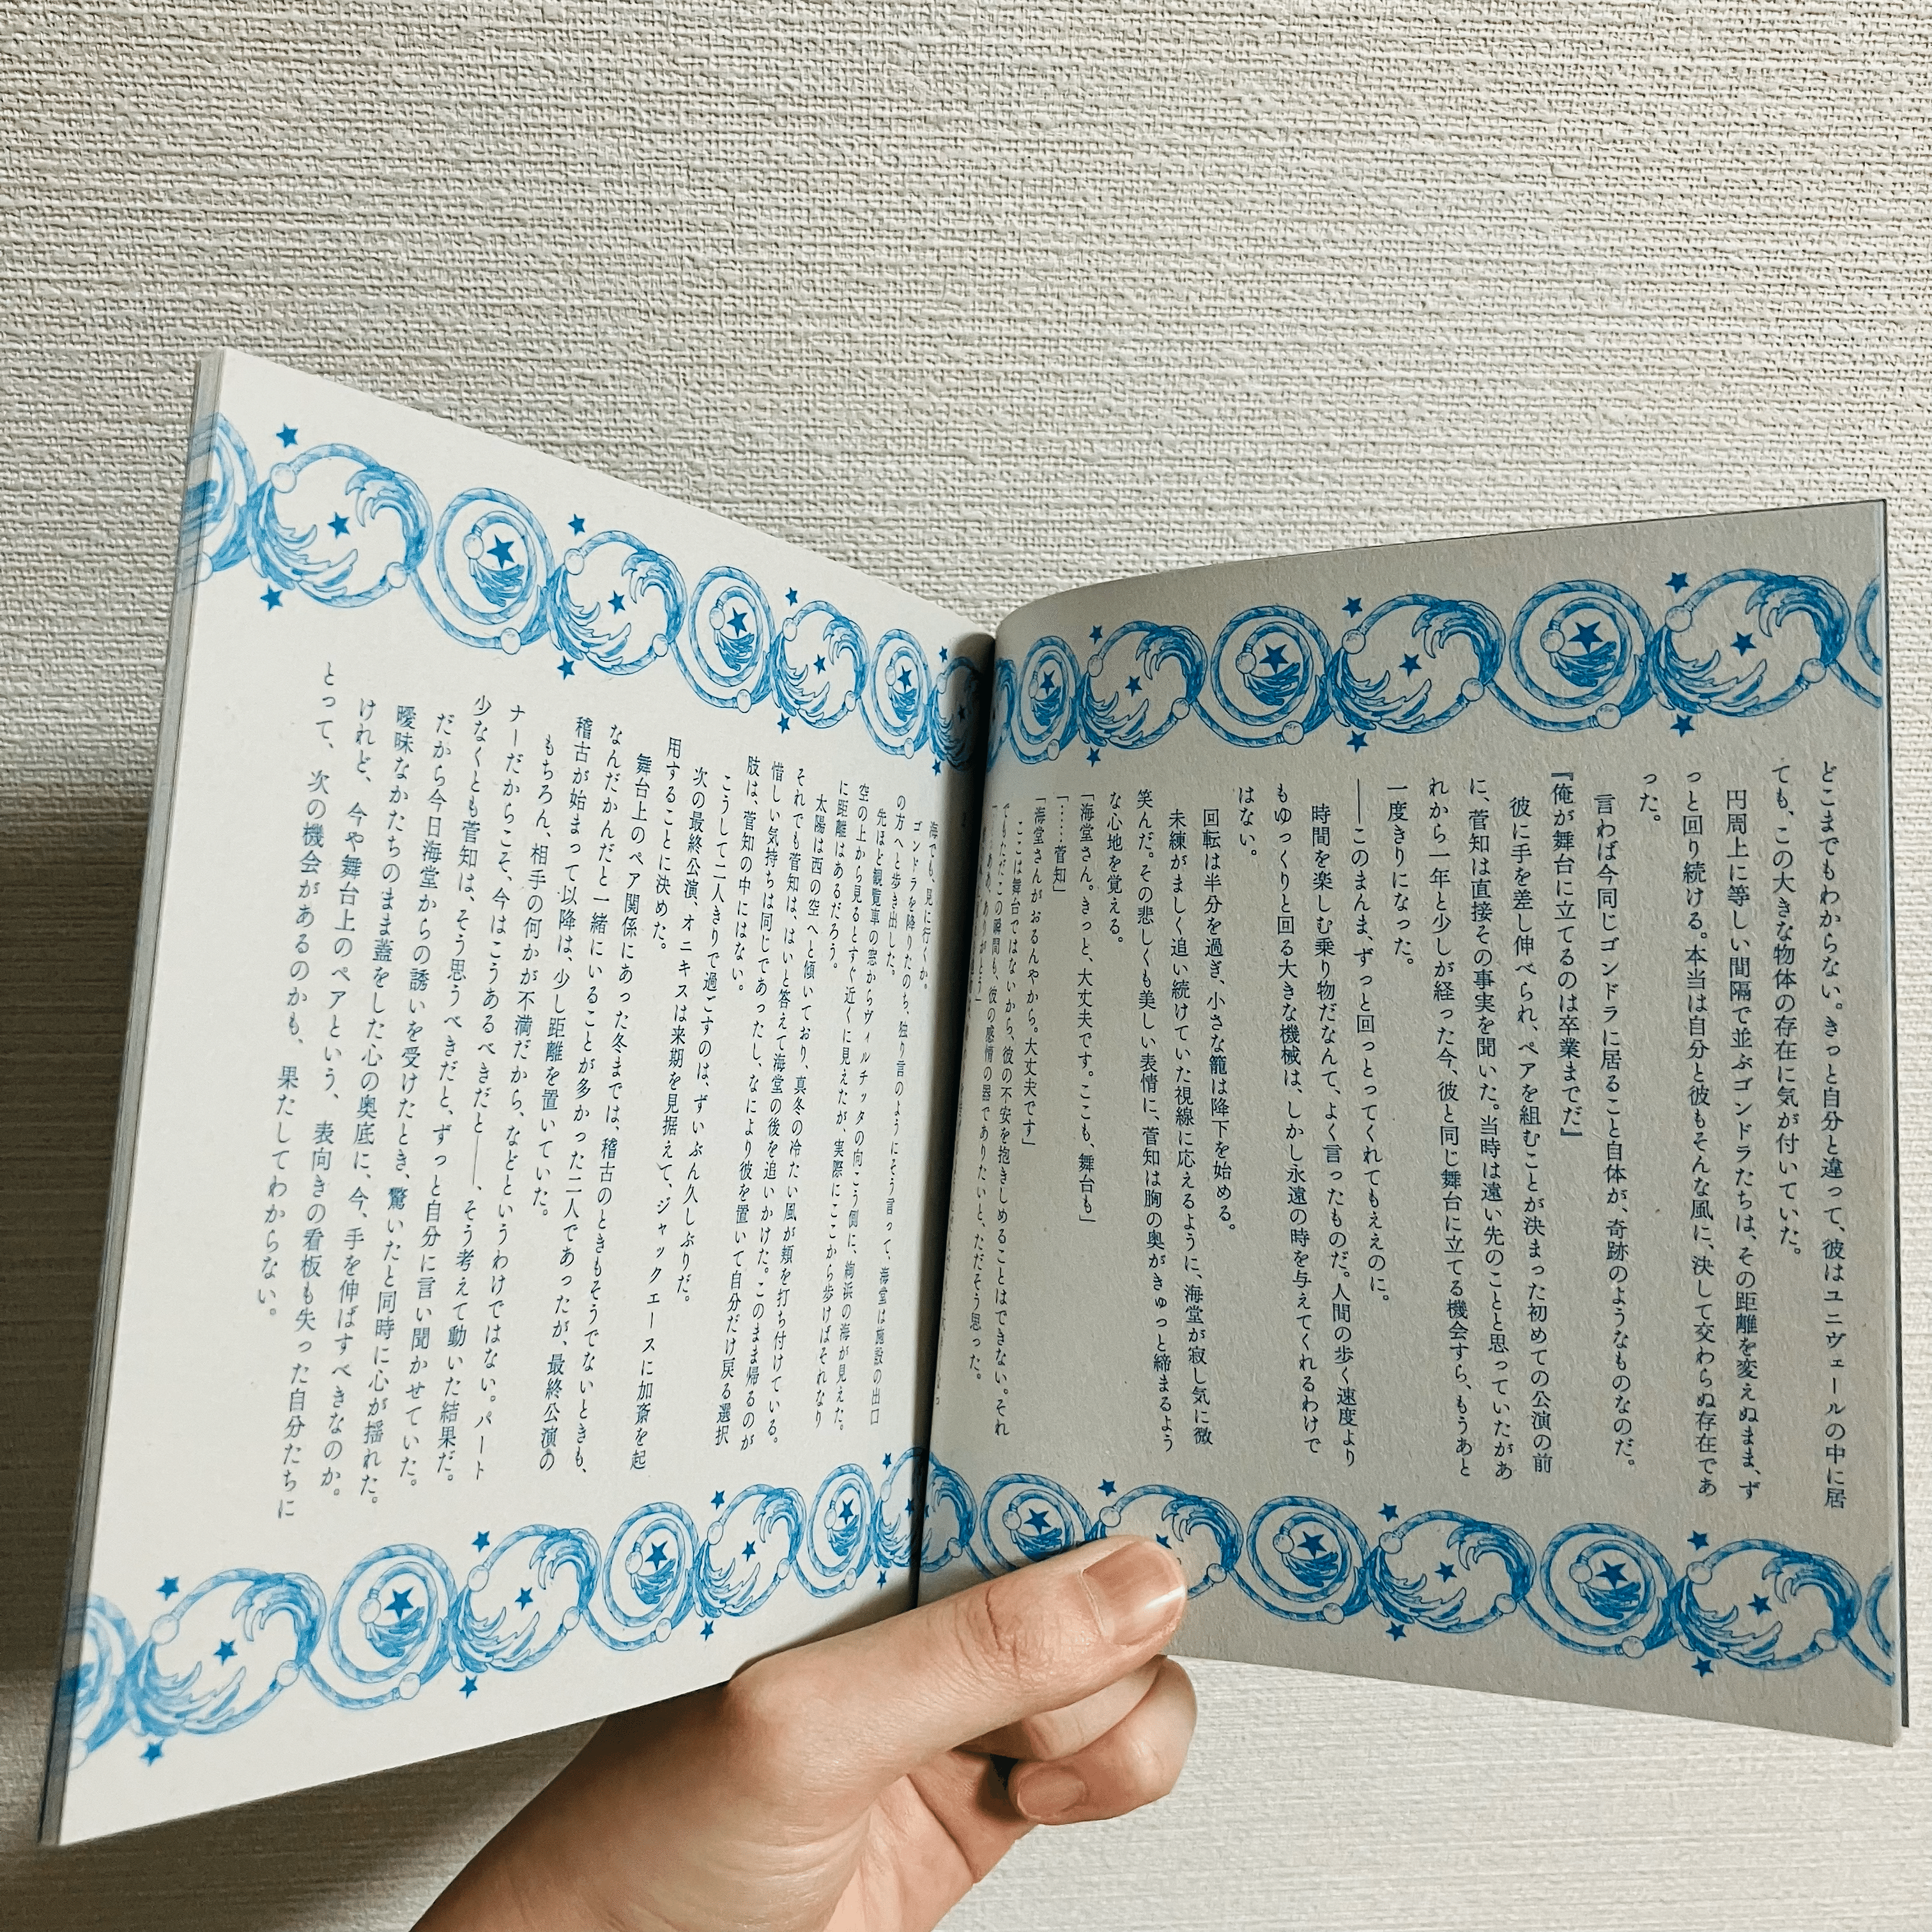 どこまでもわからない。きっと自分と違って、彼はユニヴェールの中に居
ても、この大きな物体の存在に気が付いていた。
円周上に等しい間隔で並ぶゴンドラたちは、その距離を変えぬまま、ず
っと回り続ける。本当は自分と彼もそんな風に、決して交わらぬ存在であ
った。
言わば今同じゴンドラに居ること自体が、奇跡のようなものなのだ。
『俺が舞台に立てるのは卒業までだ』
彼に手を差し伸べられ、ペアを組むことが決まった初めての公演の前
に、菅知は直接その事実を聞いた。当時は遠い先のことと思っていたがあ
れから一年と少しが経った今、彼と同じ舞台に立てる機会すら、もうあと
一度きりになった。
――このまんま、ずっと回っとってくれてもええのに。
時間を楽しむ乗り物だなんて、よく言ったものだ。人間の歩く速度より
もゆっくりと回る大きな機械は、しかし永遠の時を与えてくれるわけで
はない。
回転は半分を過ぎ、小さな籠は降下を始める。
未練がましく追い続けていた視線に応えるように、海堂が寂し気に微
笑んだ。その悲しくも美しい表情に、菅知は胸の奥がきゅっと締まるよう
な心地を覚える。
「海堂さん。きっと、大丈夫です。ここも、舞台も」
「……菅知」
「海堂さんがおるんやから。大丈夫です」
ここは舞台ではないから、彼の不安を抱きしめることはできない。それ
でもただこの瞬間も、彼の感情の器でありたいと、ただそう思った。
「……ああ、ありがとう」
海でも、見に行くか。
ゴンドラを降りたのち、独り言のようにそう言って、海堂は施設の出口
の方へと歩き出した。
先ほど観覧車の窓からヴィルチッタの向こう側に、絢浜の海が見えた。
空の上から見るとすぐ近くに見えたが、実際にここから歩けばそれなり
に距離はあるだろう。
太陽は西の空へと傾いており、真冬の冷たい風が頬を打ち付けている。
それでも菅知は、はいと答えて海堂の後を追いかけた。このまま帰るのが
惜しい気持ちは同じであったし、なにより彼を置いて自分だけ戻る選択
肢は、菅知の中にはない。
こうして二人きりで過ごすのは、ずいぶん久しぶりだ。
次の最終公演、オニキスは来期を見据えて、ジャックエースに加斎を起
用することに決めた。
舞台上のペア関係にあった冬までは、稽古のときもそうでないときも、
なんだかんだと一緒にいることが多かった二人であったが、最終公演の
稽古が始まって以降は、少し距離を置いていた。
もちろん、相手の何かが不満だから、などというわけではない。パート
ナーだからこそ、今はこうあるべきだと――、そう考えて動いた結果だ。
少なくとも菅知は、そう思うべきだと、ずっと自分に言い聞かせていた。
だから今日海堂からの誘いを受けたとき、驚いたと同時に心が揺れた。
曖昧なかたちのまま蓋をした心の奥底に、今、手を伸ばすべきなのか。
けれど、今や舞台上のペアという、表向きの看板も失った自分たちに
とって、次の機会があるのかも、果たしてわからない。